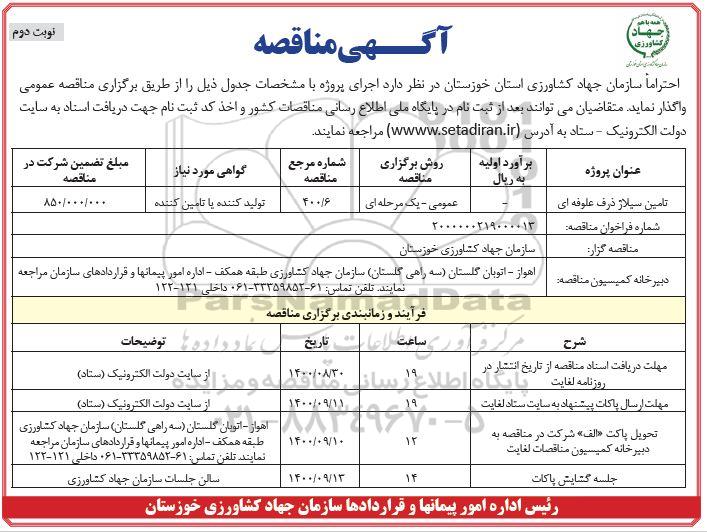 نوبت دوم
آگهی مناقصه
همه با هم
جهاد
کشاورزی
احتراماً سازمان جهاد کشاورزی استان خوزستان در نظر دارد اجرای پروژه با مشخصات جدول ذیل را از طریق برگزاری مناقصه عمومی
واگذار نماید. متقاضیان می توانند بعد از ثبت نام در پایگاه ملی اطلاع رسانی مناقصات کشور و اخذ کد ثبت نام جهت دریافت اسناد به سایت
دولت الکترونیک - ستاد به آدرس (wwww.setadiran.ir) مراجعه نمایند.
عنوان پروژه	برآورد اولیه به ریال	روش برگزاری مناقصه	شماره مرجع مناقصه	گواهی مورد نیاز	مبلغ تضمین شرکت در مناقصه
تامین سیلاژ ذرف علوفه ای	-	عمومی - یک مرحله ای	۴۰۰/۶	تولید کننده یا تامین کننده	۸۵۰/۰۰۰/۰۰۰
شماره فراخوان مناقصه:	۲۰۰۰۰۰۰۲۱۹۰۰۰۰۱۳
مناقصه گزار:	سازمان جهاد کشاورزی خوزستان
دبیرخانه کمیسیون مناقصه:	اهواز - اتوبان گلستان (سه راهی گلستان) سازمان جهاد کشاورزی طبقه همکف - اداره امور پیمانها و قراردادهای سازمان مراجعه
نمایند. تلفن تماس: ۶۱-۳۳۳۵۹۸۵۲-۰۶۱ داخلی ۱۲۱-۱۲۲
فرآیند و زمانبندی برگزاری مناقصه
شرح	ساعت	تاریخ	توضیحات
مهلت دریافت اسناد مناقصه از تاریخ انتشار در
روزنامه لغایت	۱۹	۱۴۰۰/۰۸/۳۰	از سایت دولت الکترونیک (ستاد)
مهلت ارسال پاکات پیشنهاد به سایت ستاد لغایت	۱۹	۱۴۰۰/۰۹/۱۱	از سایت دولت الکترونیک (ستاد)
تحویل پاکت «الف» شرکت در مناقصه به
دبیرخانه کمیسیون مناقصات لغایت	۱۲	۱۴۰۰/۰۹/۱۰	اهواز - اتوبان گلستان (سه راهی گلستان) سازمان جهاد کشاورزی
طبقه همکف - اداره امور پیمانها و قراردادهای سازمان مراجعه
نمایند. تلفن تماس: ۶۱-۳۳۳۵۹۸۵۲-۰۶۱ داخلی ۱۲۱-۱۲۲
جلسه گشایش پاکات	۱۴	۱۴۰۰/۰۹/۱۳	سالن جلسات سازمان جهاد کشاورزی
رئیس اداره امور پیمانها و قراردادها سازمان جهاد کشاورزی خوزستان
ParsNamadData
پایگاه اطلاع رسانی مناقصه و مزایده
۰۲۱-۸۸۳۴۹۶۷۰-۵